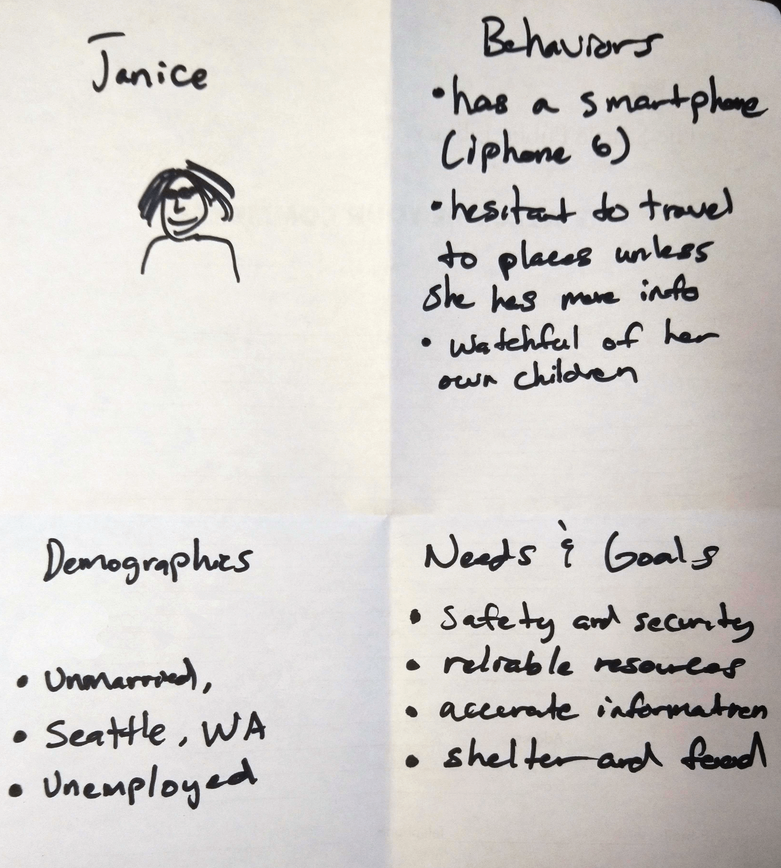 Janice
Behaviors
• has a smartphone
(iphone 6)
• hesitant to travel
to places unless
she has more info
• watchful of her
own children
Demographics
• Unmarried,
• Seattle, WA
• Unemployed
Needs & Goals
• Safety and security
• reliable resources
• accurate information
• shelter and food